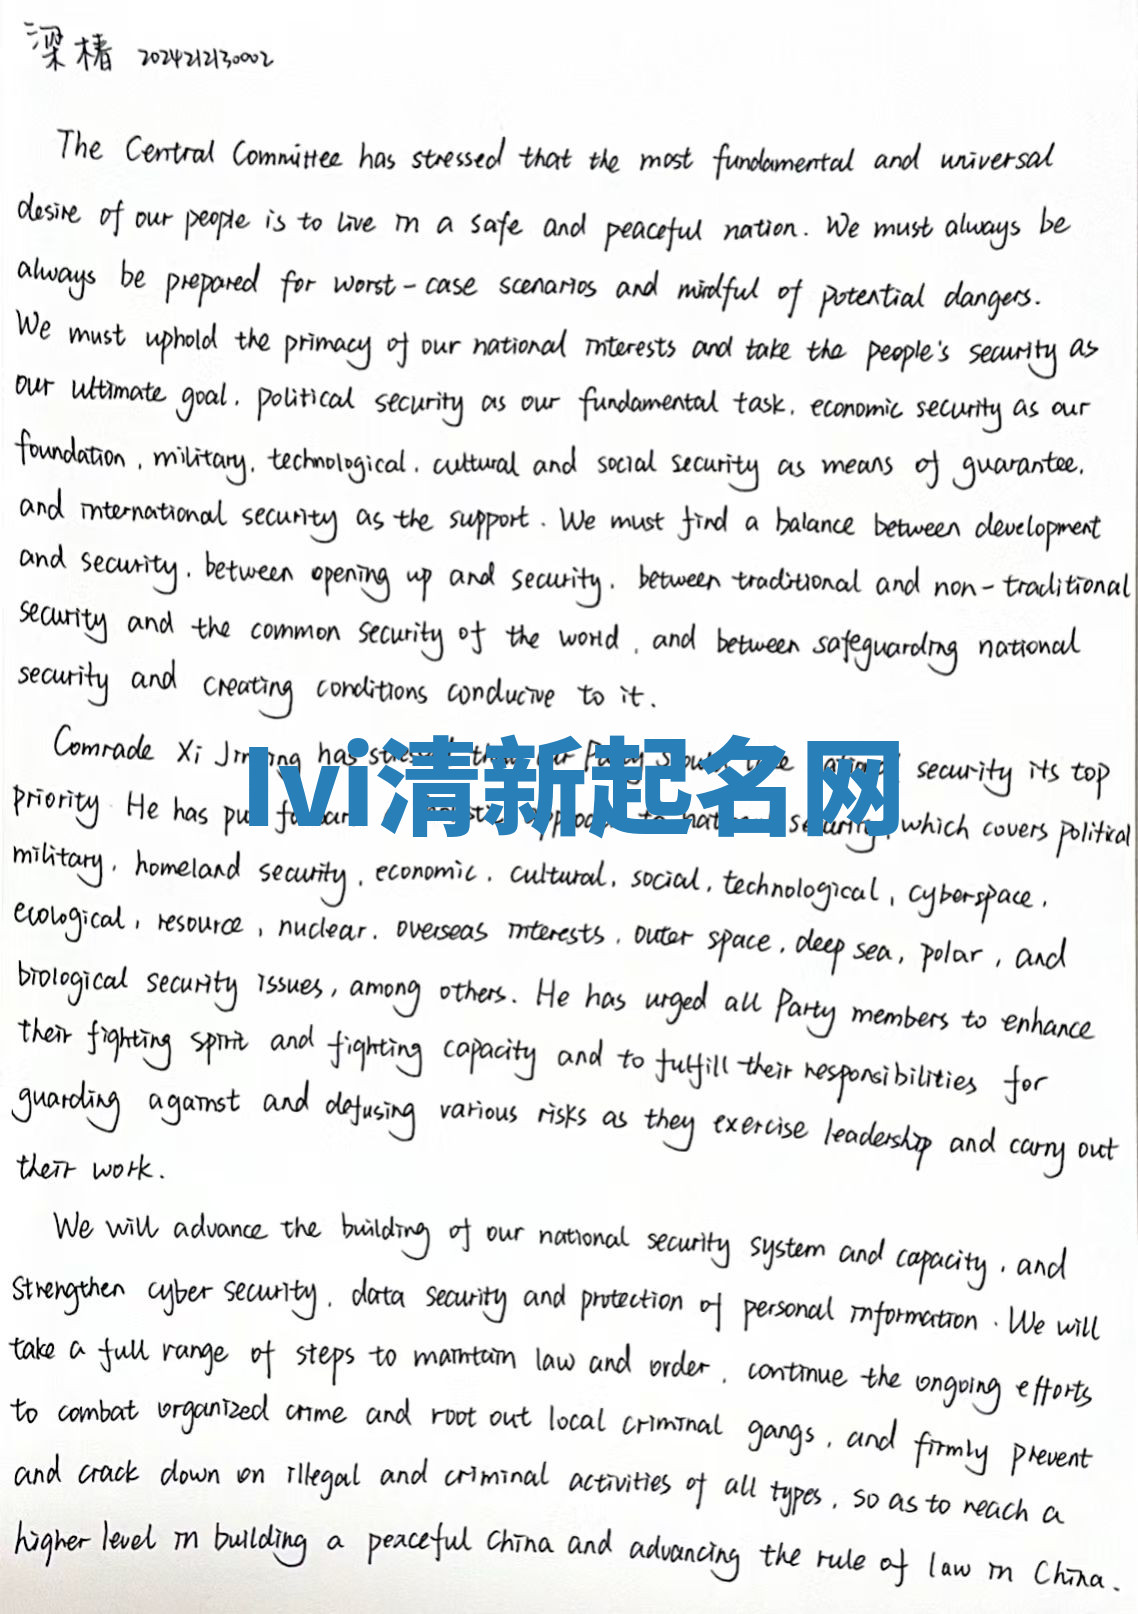 梁椿 2024212130002
The Central Committee has stressed that the most fundamental and universal
desire of our people is to live in a safe and peaceful nation. We must always be
always be prepared for worst-case scenarios and mindful of potential dangers.
We must uphold the primacy of our national interests and take the people's security as
our ultimate goal, political security as our fundamental task, economic security as our
foundation, military, technological, cultural and social security as means of guarantee,
and international security as the support. We must find a balance between development
and security, between opening up and security, between traditional and non-traditional
security and the common security of the world, and between safeguarding national
security and creating conditions conducive to it.
Comrade Xi Jinping has stressed that our Party should take national security its top
priority. He has put forward holistic approach to national security, which covers political
military, homeland security, economic, cultural, social, technological, cyberspace,
ecological, resource, nuclear, overseas interests, outer space, deep sea, polar, and
biological security issues, among others. He has urged all Party members to enhance
their fighting spirit and fighting capacity and to fulfill their responsibilities for
guarding against and defusing various risks as they exercise leadership and carry out
their work.
We will advance the building of our national security system and capacity, and
strengthen cyber security, data security and protection of personal information. We will
take a full range of steps to maintain law and order, continue the ongoing efforts
to combat organized crime and root out local criminal gangs, and firmly prevent
and crack down on illegal and criminal activities of all types, so as to reach a
higher level in building a peaceful China and advancing the rule of law in China.
Ivi清新起名网